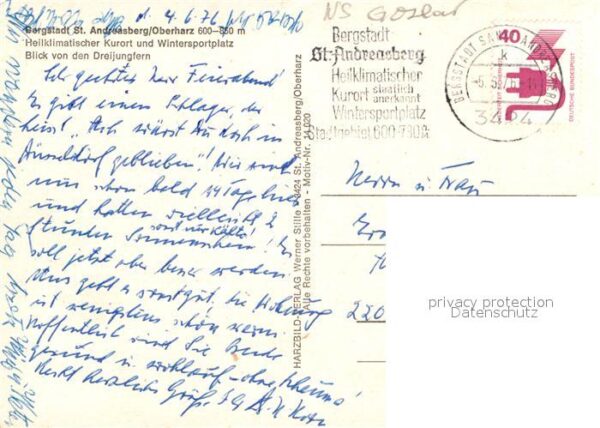 d. 4.6.76
NS Goslar
Bergstadt St. Andreasberg/Oberharz 600-850 m
Heilklimatischer Kurort und Wintersportplatz
Blick von den Dreijungfern
Bergstadt
St. Andreasberg
Heilklimatischer
Kurort staatlich anerkannt
Wintersportplatz
Stadtgebiet 600-730 m
BERGSTADT SANKT ANDREASBERG
k
3424
40
DEUTSCHE BUNDESPOST
Es gibt einen Schlager, der
heist „Ach wärst Du doch in
Düsseldorf geblieben! Wir sind
nun schon bald 14 Tage hier
und hatten vielleicht 2
Stunden Sonnenschein! Es
sonst nur Kälte!
soll jetzt aber besser werden
Uns geht es sonst gut, die Wohnung
ist wenigstens schön warm.
Hoffentlich sind Sie beide
gesund u. wohlauf - ohne Rheuma!
Recht herzliche Grüße
HARZBILD-VERLAG Werner Stille 3424 St. Andreasberg/Oberharz
Alle Rechte vorbehalten - Motiv-Nr.
Herrn u. Frau
220
privacy protection
Datenschutz